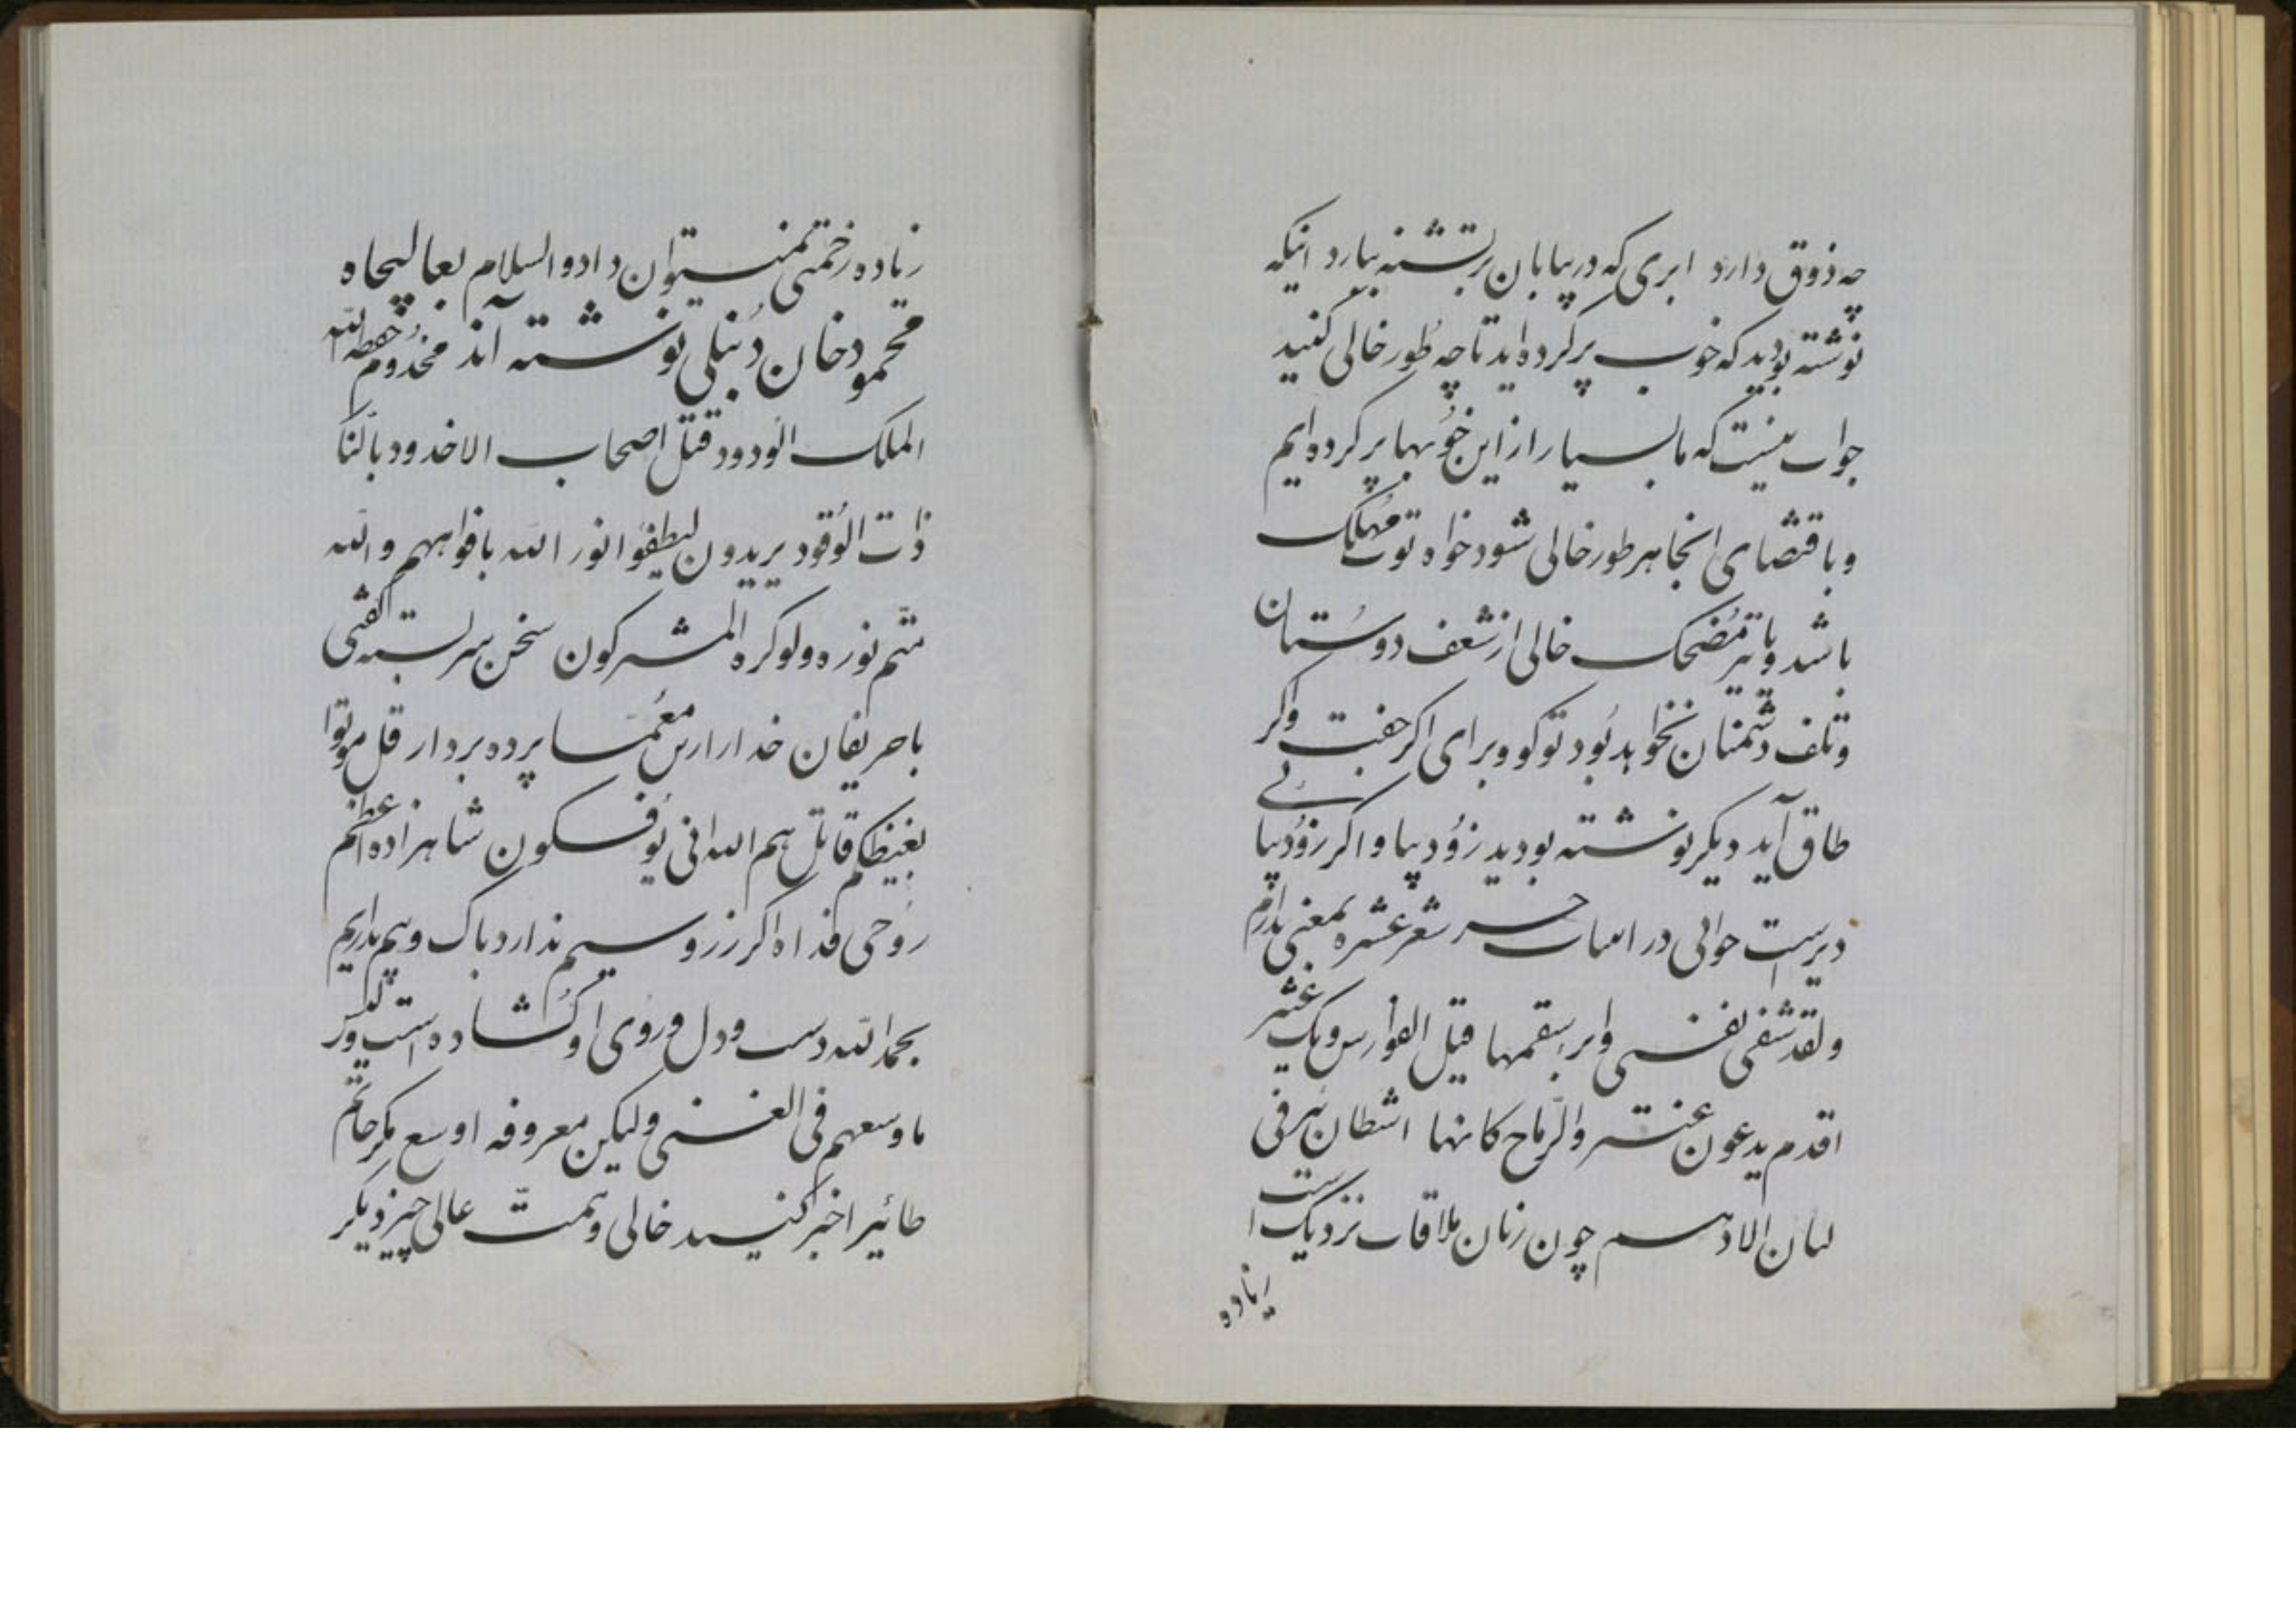 چه ذوق دارد ابری که در بیابان بر تشنه ببارد اینکه
نوشته بودید که خوب پر کرده اید تا چه طور خالی کنید
جواب نیست که ما بسیار از این خوبها پر کرده ایم
و باقتضای انجا هر طور خالی شود خواه توپ مهلک
باشد و یا تیر مضحک خالی از شعف دوستان
و تلف دشمنان نخواهد بود تو کو و برای اگر جفت و اگر
طاق آید دیگر نوشته بودید زود بیا و اگر زود بیائی
دیر است جوابی در ابیات شعر عشره بمعنی دارم
ولقد شفی نفسی وابر سقمها قیل الفوارس ویک عنتر
اقدم یدعون عنتر والرماح کانها اشطان بئر فی
لبان الادهم چون زمان ملاقات نزدیک است
زیاده
زیاده زحمتی نمیتوان داد والسلام بعالیجاه
محمود خان دنبلی نوشته اند مخدوم حفظه الله
الملک الودود قتل اصحاب الاخدود بالنار
ذات الوقود یریدون لیطفؤا نور الله بافواههم والله
متم نوره ولو کره المشرکون سخن سربسته گفتی
با حریفان خدا را زین معما پرده بردار قل موتوا
بغیظکم قاتلهم الله انی یؤفکون شاهزاده اعظم
روحی فداه اگر زر و سیم ندارد باک و بیم نداریم
بحمدالله دست و دل و روی او گشاده است ولیس
باوسعهم فی الغنی ولیکن معروفه اوسع مگر حاتم
طائی را خبر کنید خالی و همت عالی چیز دیگر